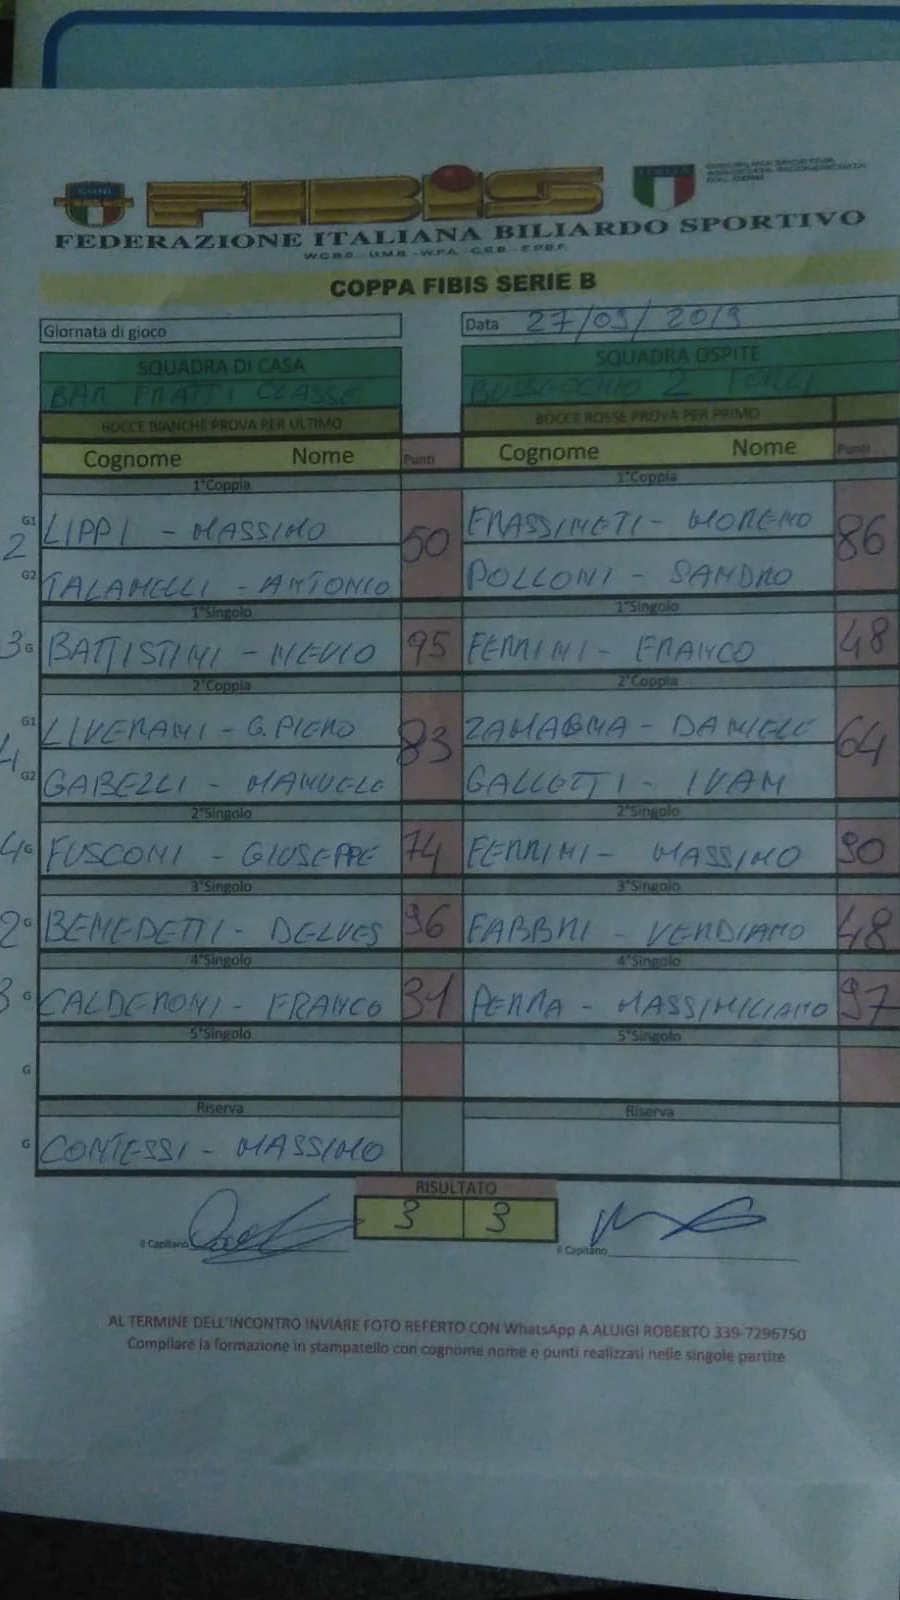 CONI
FIBIS
ITALIA
DISCIPLINA SPORTIVA
ASSOCIATA RICONOSCIUTA
DAL CONI
FEDERAZIONE ITALIANA BILIARDO SPORTIVO
W.C.B.S. - U.M.B. - W.P.A. - C.E.B. - E.P.B.F.
COPPA FIBIS SERIE B
Giornata di gioco Data 27/03/2019
SQUADRA DI CASA SQUADRA OSPITE
BAR PRATTI CLASSE BUSSECCHIO 2 FORLI
BOCCE BIANCHE PROVA PER ULTIMO BOCCE ROSSE PROVA PER PRIMO
Cognome Nome Punti Cognome Nome Punti
1°Coppia 1°Coppia
G1 LIPPI - MASSIMO 50 FRASSINETI - MORENO 86
2
G2 TALAMELLI - ANTONIO POLLONI - SANDRO
1°Singolo 1°Singolo
3 G BATTISTINI - NEVIO 95 FERRINI - FRANCO 48
2°Coppia 2°Coppia
G1 LIVERANI - G.PIERO 83 ZAMAGNA - DANIELE 64
4
G2 GABELLI - MANUELE GALLOTTI - IVAN
2°Singolo 2°Singolo
4 G FUSCONI - GIUSEPPE 74 FERRINI - MASSIMO 90
3°Singolo 3°Singolo
2 G BENEDETTI - DELVES 96 FABBRI - VERDIANO 48
4°Singolo 4°Singolo
3 G CALDERONI - FRANCO 31 PERRA - MASSIMILIANO 97
5°Singolo 5°Singolo
G
Riserva Riserva
G CONTESSI - MASSIMO
RISULTATO
3 3
il Capitano il Capitano
AL TERMINE DELL'INCONTRO INVIARE FOTO REFERTO CON WhatsApp A ALUIGI ROBERTO 339-7296750
Compilare la formazione in stampatello con cognome nome e punti realizzati nelle singole partite